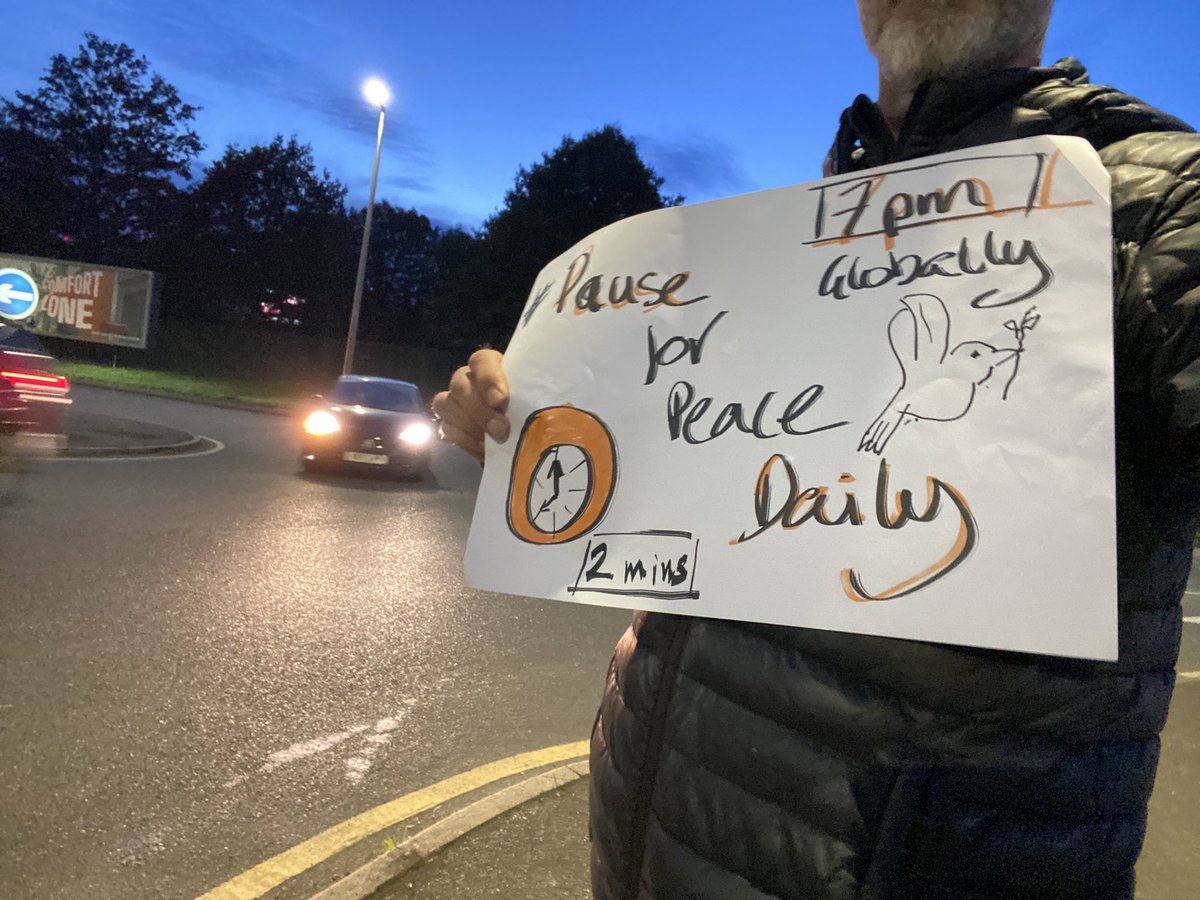 7pm
Globally
#Pause
for
Peace
Daily
2 mins
COMFORT
ZONE